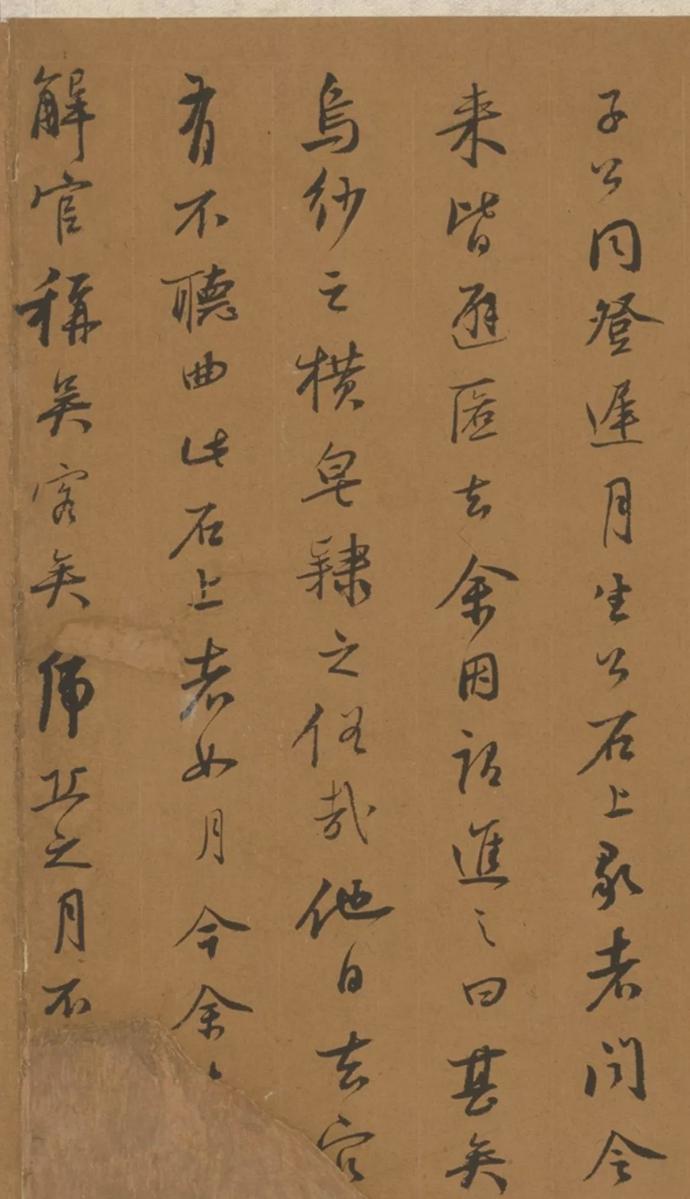 子公同登遲月生公石上歌者聞令
来皆避匿去余因謂進之曰甚矣
烏紗之橫皂隸之俗哉他日去官
有不聽曲此石上者如月今余
解官稱吳客矣虎丘之月不